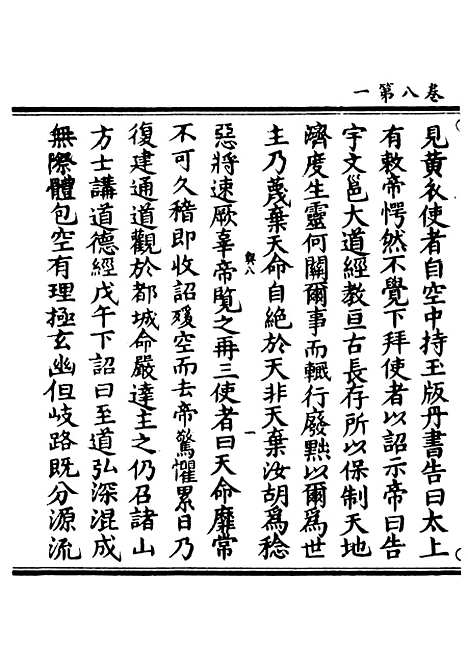 卷八第一
見黃衣使者自空中持玉版丹書告曰太上
有敕帝愕然不覺下拜使者以詔示帝曰告
宇文邕大道經教亘古長存所以保制天地
濟度生靈何關爾事而輒行廢黜以爾為世
主乃蔑棄天命自絕於天非天棄汝胡為稔
觀八
一
惡將速厥辜帝覽之再三使者曰天命靡常
不可久稽即收詔躡空而去帝驚懼累日乃
復建通道觀於都城命嚴達主之仍召諸山
方士講道德經戊午下詔曰至道弘深混成
無際體包空有理極玄幽但岐路既分源流